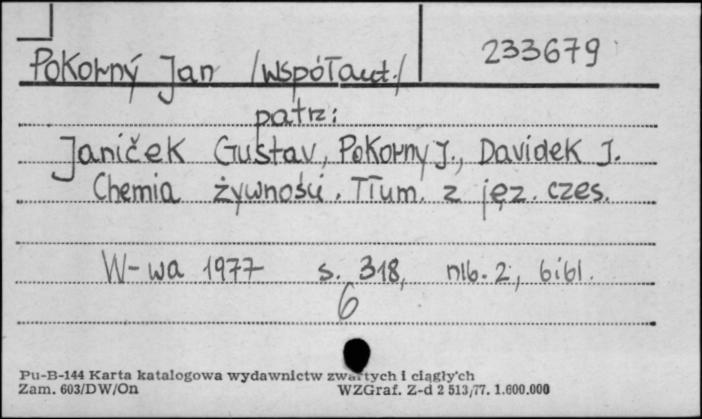 Pokorný Jan /współaut./ 233679
patrz:
Janiček Gustav, Pokorny J., Davidek J.
Chemia żywności. Tłum. z jęz. czes.
W-wa 1977 s. 318, nlb. 2, bibl.
6
Pu-B-144 Karta katalogowa wydawnictw zwartych i ciągłych
Zam. 603/DW/On WZGraf. Z-d 2 513/77. 1.600.000